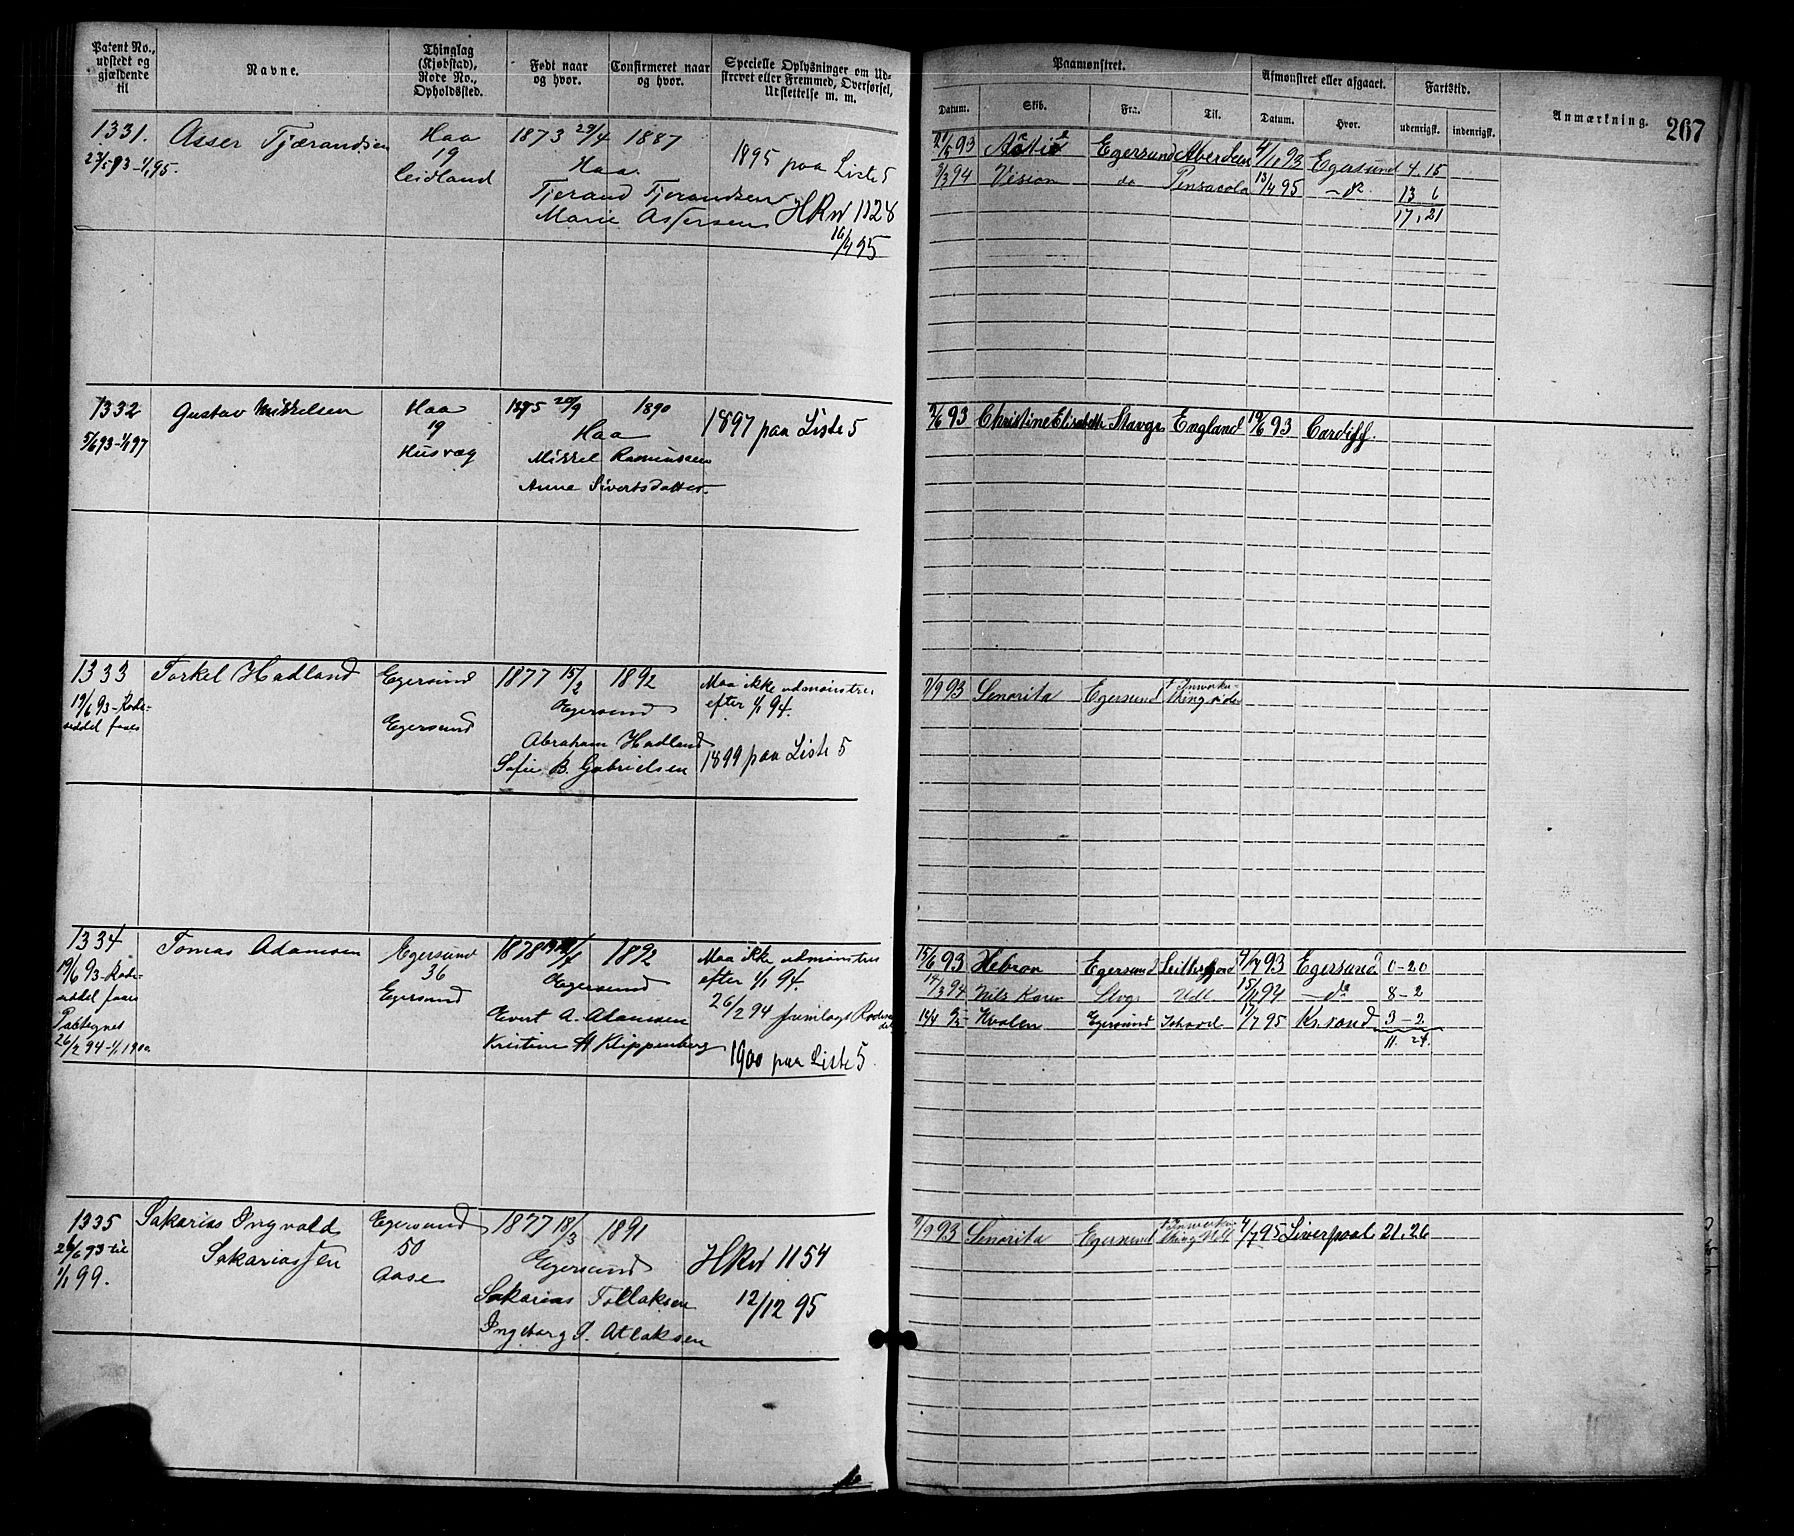 Patent No., udstedt og gjældende til
Navne.
Thinglag (Kjøbstad), Rode No., Opholdssted.
Født naar og hvor.
Confirmeret naar og hvor.
Specielle Oplysninger om Udskrevet eller Fremmed, Overførsel, Udslettelse m. m.
Paamønstret.
Datum.
Skib.
Fra.
Til.
Afmønstret eller afgaaet.
Datum.
Hvor.
Fartstid.
udenrigsk.
indenrigsk.
Anmærkning.
267
1331. Asser Tjærandsen Haa 1873 29/4 1887
19
Leidland
Haa.
Tjerand Tjerandsen
Marie Assersen
1895 paa Liste 5
HRN 1128
16/4 95
93 Egersund Aberdeen 93 Egersund 4.15
3/3 94 Vision do Pensacola 13/4 95 - do 13 6
17, 21
1332 Gustav Mikkelsen Haa 1875 20/9 1890
5/6 93-1/1 97
19
Husvæg
Haa
Mikkel Rasmussen
Anna Sivertsdatter
1897 paa Liste 5
2/6 93 Christine Elisabeth Stavgr England 19/6 93 Cardiff.
1333 Torkel Hadland Egersund 1877 15/2 1892
19/6 93-Rode-
seddel faaes
Egersund
Egersund
Abraham Hadland
Sofie B. Gabrielsen
Maa ikke udmønstres
efter 1/1 94.
1899 paa Liste 5
9/9 93 Senorita Egersund
1334 Tomas Adamsen Egersund 1878 1892
19/6 93-Rode-
seddel faaes
Pategnes
26/2 94-1/1 1900
36
Egersund
Egersund
Evert A. Adamsen
Kristine H Klippenberg
Maa ikke udmønstres
efter 1/1 94.
26/2 94 fremlagt Rodesed-
del
1900 paa Liste 5.
15/6 93 Hebron Egersund 93 Egersund 0-20
14/3 94 Nils Karen Stvgr Udl 94 - do 8-2
Kvalen Egersund 17/7 95 Kr.sand 3-2
11. 24.
1335 Sakarias Ingvald Egersund 1877 18/3 1891
26/6 93 til
1/1 99.
Sakariassen
50
Aase
Egersund
Sakarias Tollaksen
Ingeborg S. Atlaksen
HRN 1154
12/12 95
9/9 93 Senorita Egersund 4/7 95 Liverpool 21.26